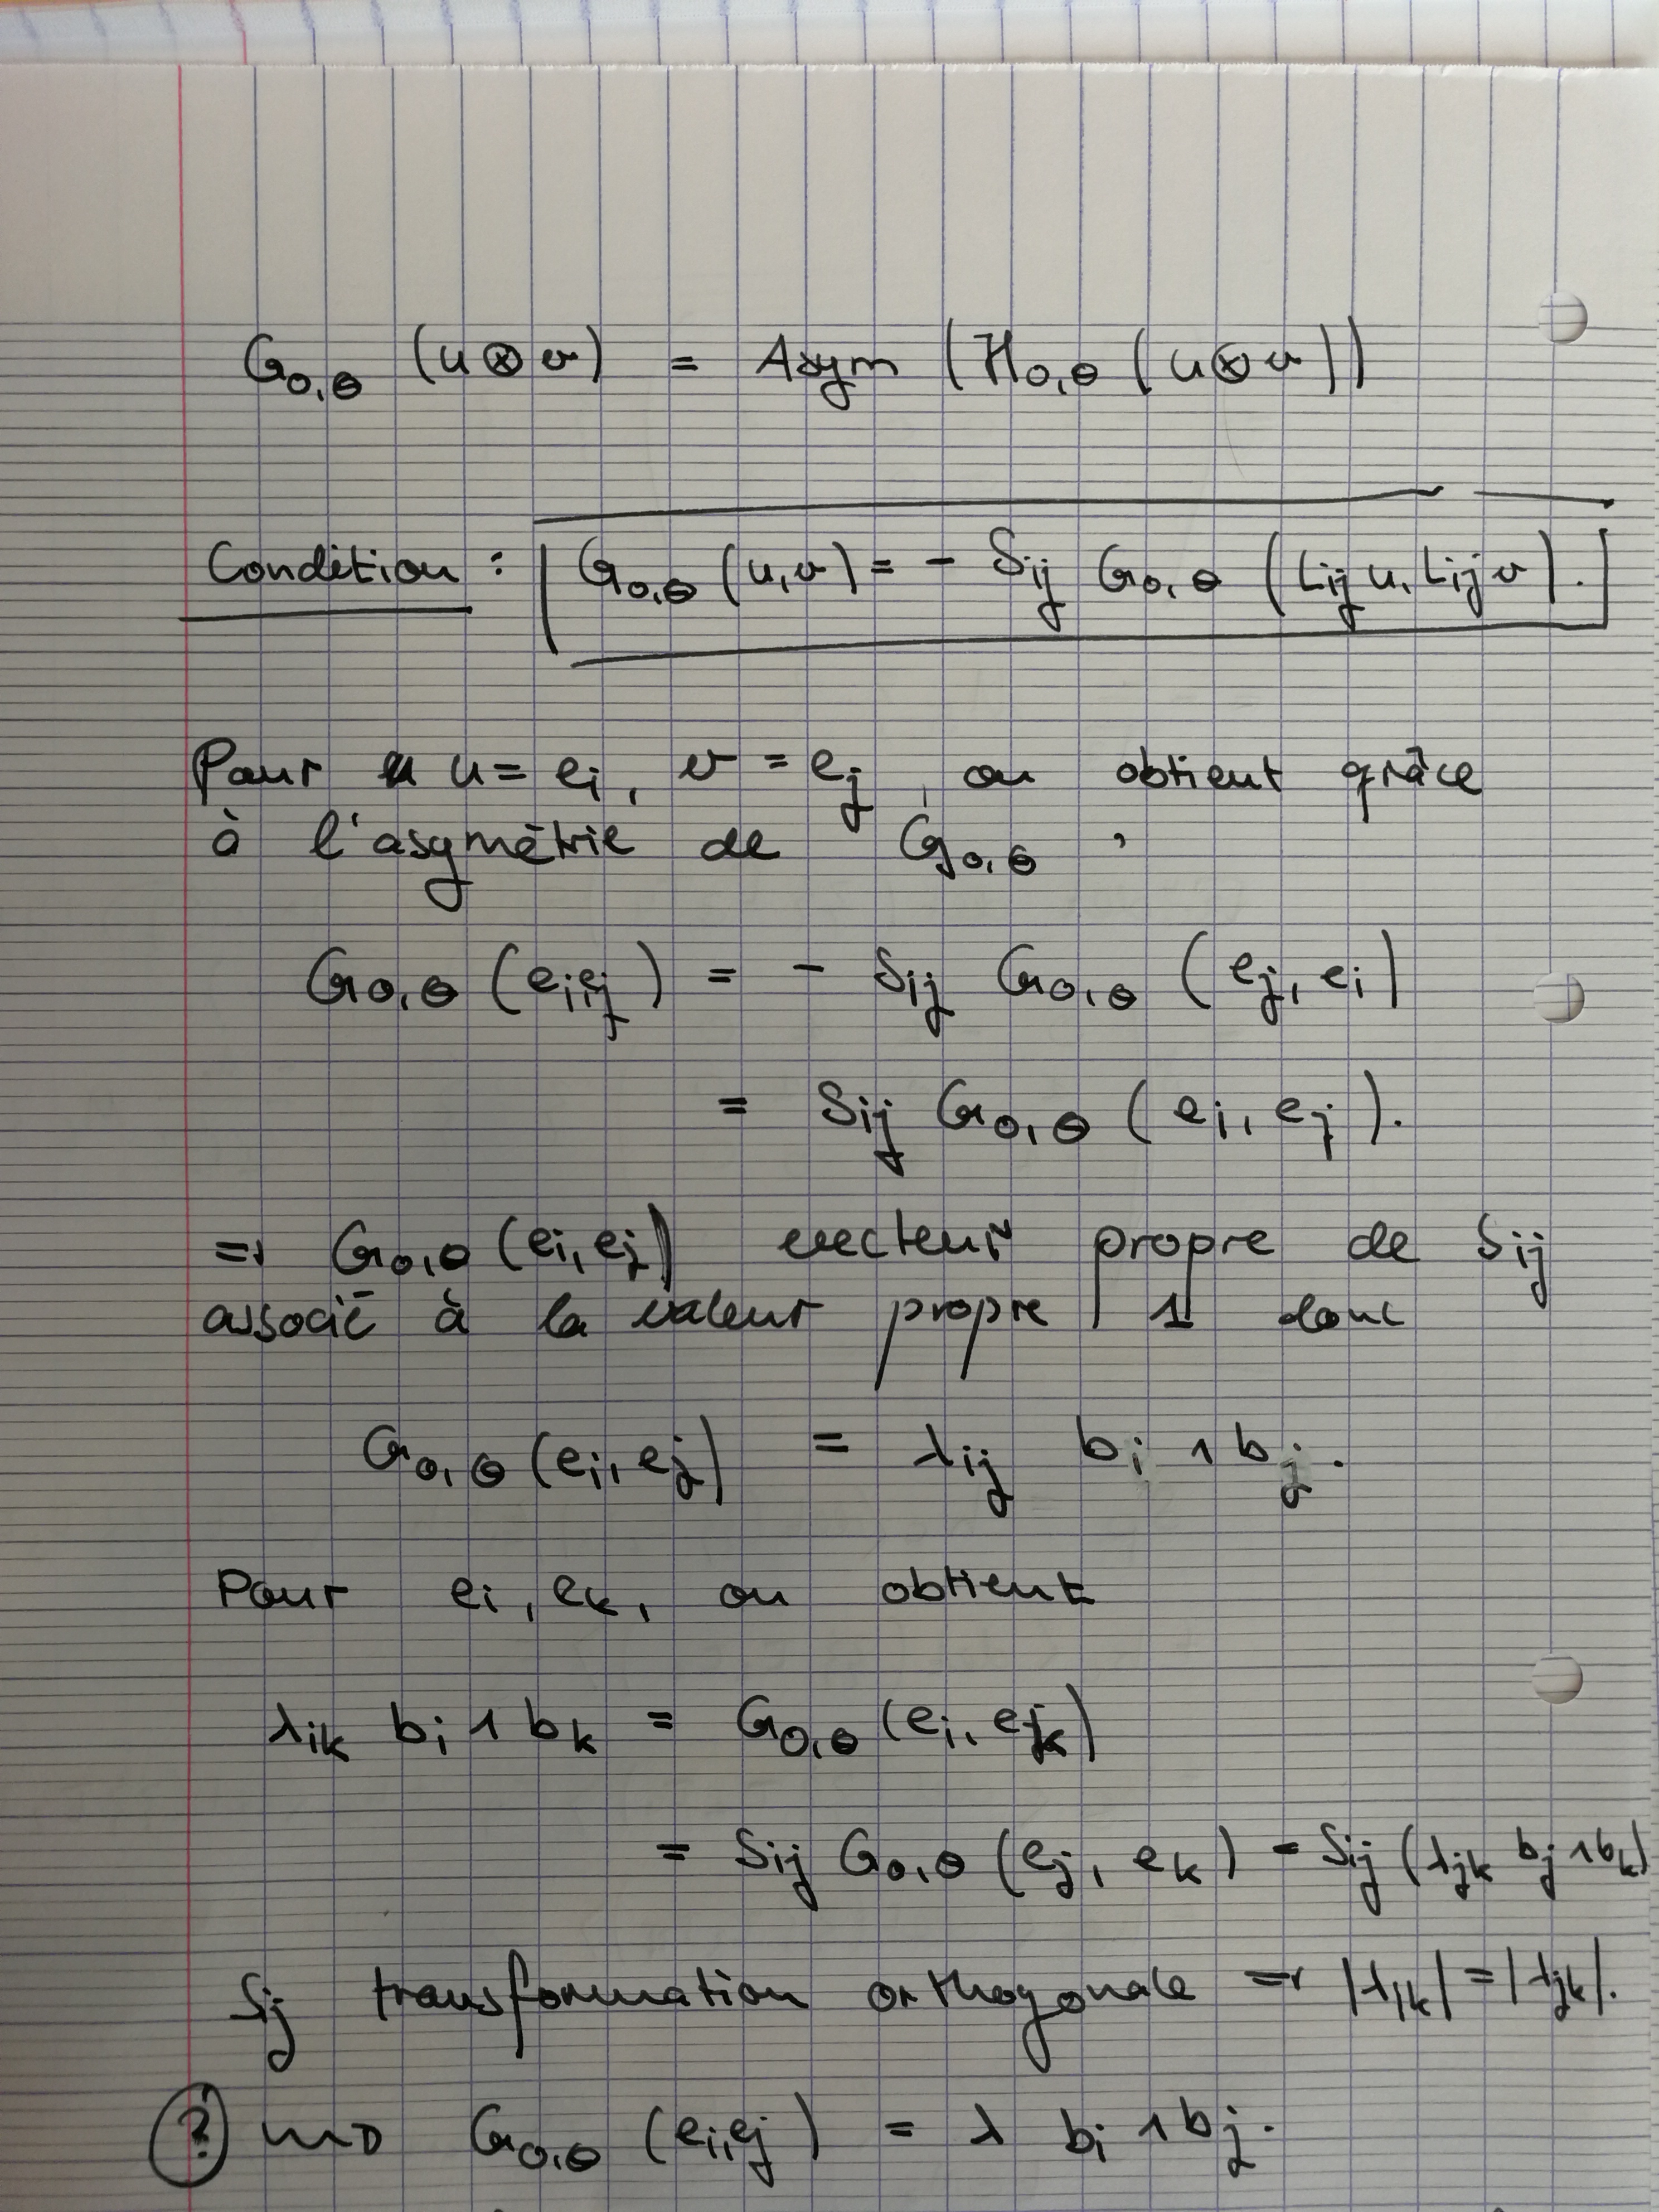 G₀,θ (u⊗v) = Asym (H₀,θ (u⊗v))
Condition : G₀,θ (u,v) = - Sij G₀,θ (Lij u, Lij v).
Pour u = ei, v = ej, on obtient grâce
à l'asymétrie de G₀,θ ,
G₀,θ (ei,ej) = - Sij G₀,θ (ej, ei)
= Sij G₀,θ (ei, ej).
⇒ G₀,θ (ei, ej) vecteur propre de Sij
associé à la valeur propre 1 donc
G₀,θ (ei, ej) = λij bi ∧ bj.
Pour ei, ek, on obtient
λik bi ∧ bk = G₀,θ (ei, ek)
= Sij G₀,θ (ej, ek) = Sij (λjk bj ∧ bk)
Sij transformation orthogonale ⇒ |λik| = |λjk|.
? ⇝ G₀,θ (ei,ej) = λ bi ∧ bj.